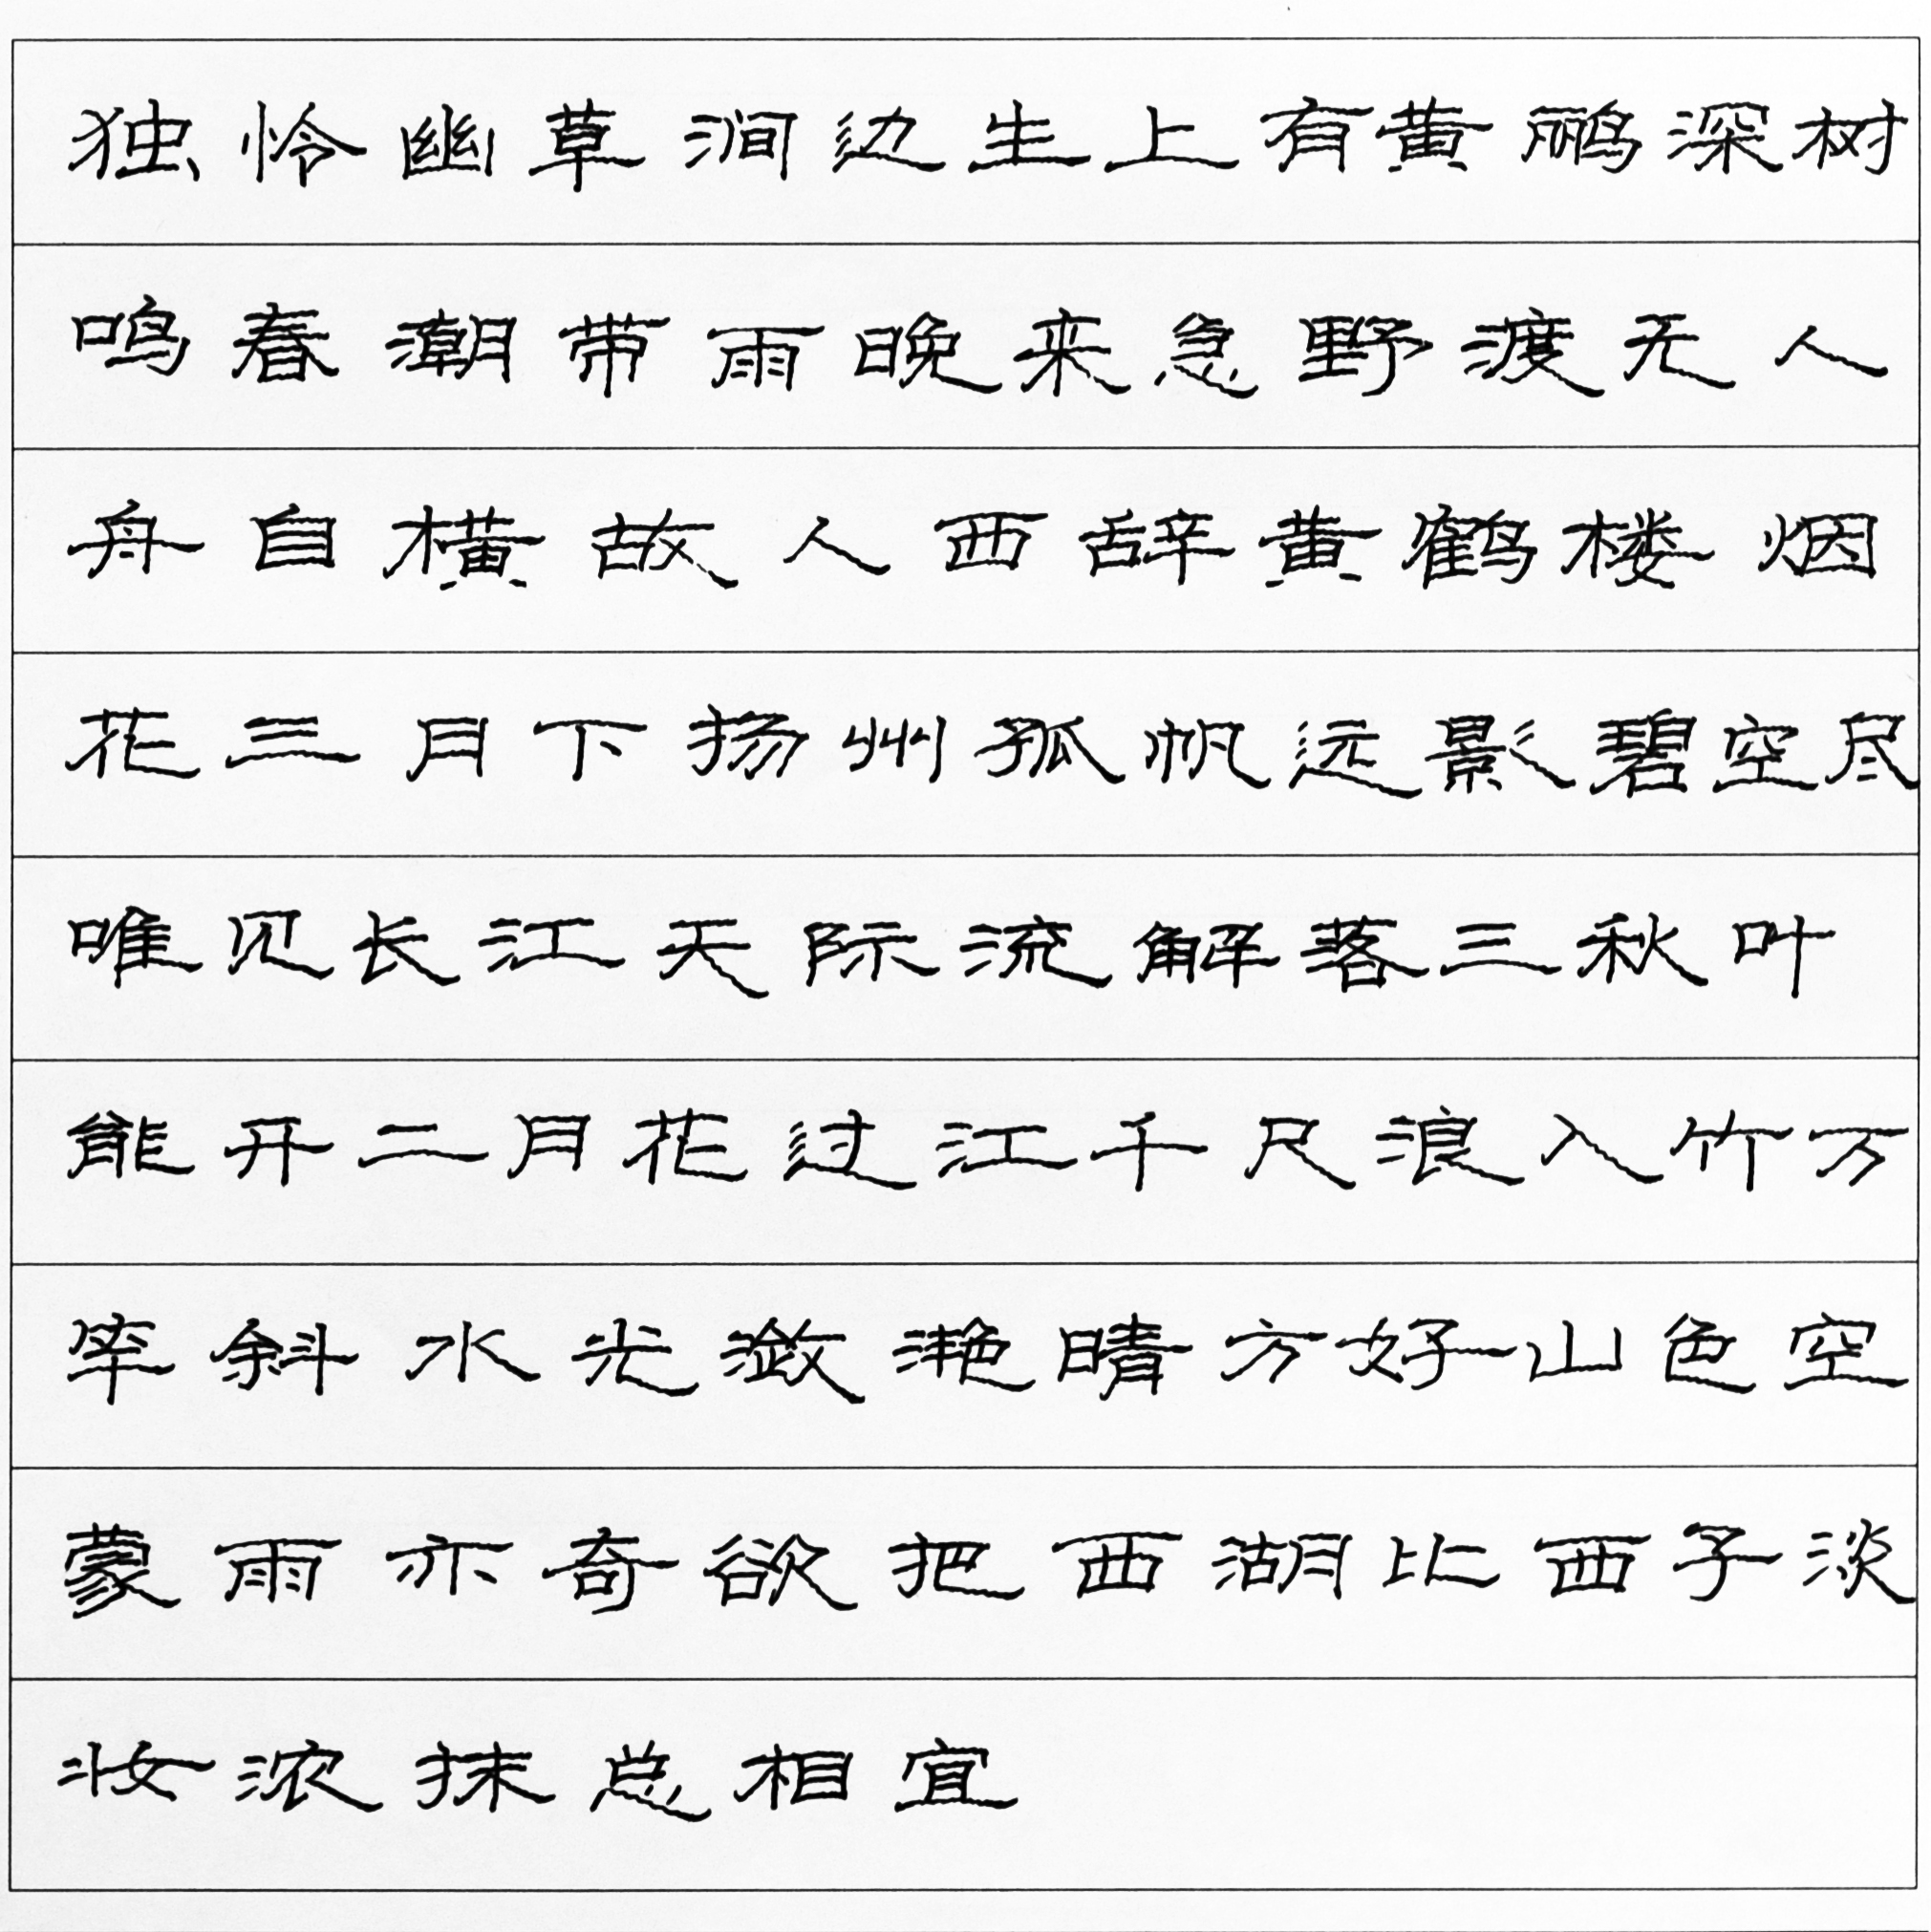 独怜幽草涧边生上有黄鹂深树
鸣春潮带雨晚来急野渡无人
舟自横故人西辞黄鹤楼烟
花三月下扬州孤帆远影碧空尽
唯见长江天际流解落三秋叶
能开二月花过江千尺浪入竹万
竿斜水光潋滟晴方好山色空
蒙雨亦奇欲把西湖比西子淡
妆浓抹总相宜